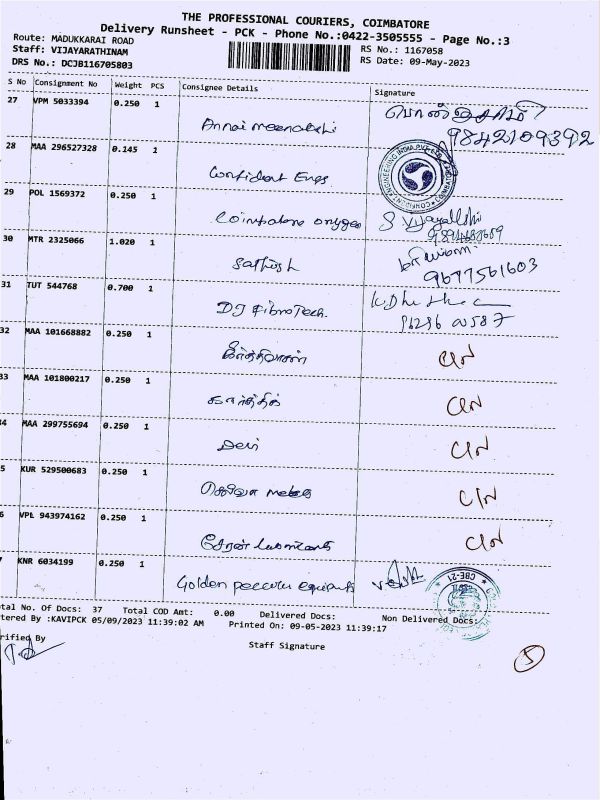 THE PROFESSIONAL COURIERS, COIMBATORE
Delivery Runsheet - PCK - Phone No.:0422-3505555 - Page No.:3
Route: MADUKKARAI ROAD
Staff: VIJAYARATHINAM
DRS No.: DCJB116705803
RS No.: 1167058
RS Date: 09-May-2023
S No Consignment No Weight PCS Consignee Details Signature
27 VPM 5033394 0.250 1 Annai meenakshi
9842109392
28 MAA 296527328 0.145 1 Confident Engg
29 POL 1569372 0.250 1 Coimbatore oxygen S. Vijayallshi
30 MTR 2325066 1.020 1 Sathish
9677561603
31 TUT 544768 0.700 1 DJ FibroTech.
32 MAA 101668882 0.250 1 C/N
33 MAA 101800217 0.250 1 கார்த்திக் C/N
4 MAA 299755694 0.250 1 Devi C/N
5 KUR 529500683 0.250 1 C/N
6 VPL 943974162 0.250 1 சேரன் Lubricants C/N
7 KNR 6034199 0.250 1 Golden
CBE-21
otal No. Of Docs: 37 Total COD Amt: 0.00 Delivered Docs: Non Delivered Docs:
tered By :KAVIPCK 05/09/2023 11:39:02 AM Printed On: 09-05-2023 11:39:17
rified By
Staff Signature
5